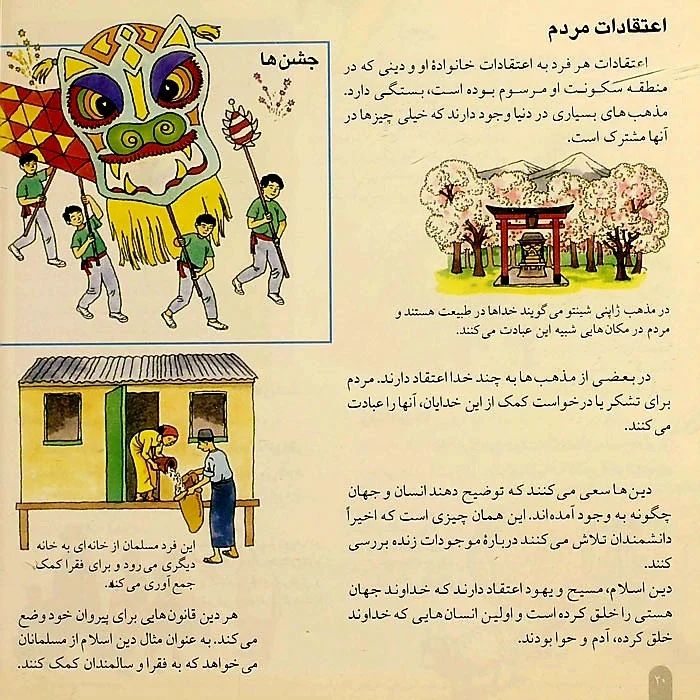 اعتقادات مردم
اعتقادات هر فرد به اعتقادات خانوادهٔ او و دینی که در
منطقه سکونت او مرسوم بوده است، بستگی دارد.
مذهب‌های بسیاری در دنیا وجود دارند که خیلی چیزها در
آنها مشترک است.
در مذهب ژاپنی شینتو می‌گویند خداها در طبیعت هستند و
مردم در مکان‌هایی شبیه این عبادت می‌کنند.
در بعضی از مذهب‌ها به چند خدا اعتقاد دارند. مردم
برای تشکر یا درخواست کمک از این خدایان، آنها را عبادت
می‌کنند.
دین‌ها سعی می‌کنند که توضیح دهند انسان و جهان
چگونه به وجود آمده‌اند. این همان چیزی است که اخیراً
دانشمندان تلاش می‌کنند دربارهٔ موجودات زنده بررسی
کنند.
دین اسلام، مسیح و یهود اعتقاد دارند که خداوند جهان
هستی را خلق کرده است و اولین انسان‌هایی که خداوند
خلق کرده، آدم و حوا بودند.
جشن‌ها
این فرد مسلمان از خانه‌ای به خانه
دیگری می‌رود و برای فقرا کمک
جمع‌آوری می‌کند.
هر دین قانون‌هایی برای پیروان خود وضع
می‌کند. به عنوان مثال دین اسلام از مسلمانان
می‌خواهد که به فقرا و سالمندان کمک کنند.
۲۰